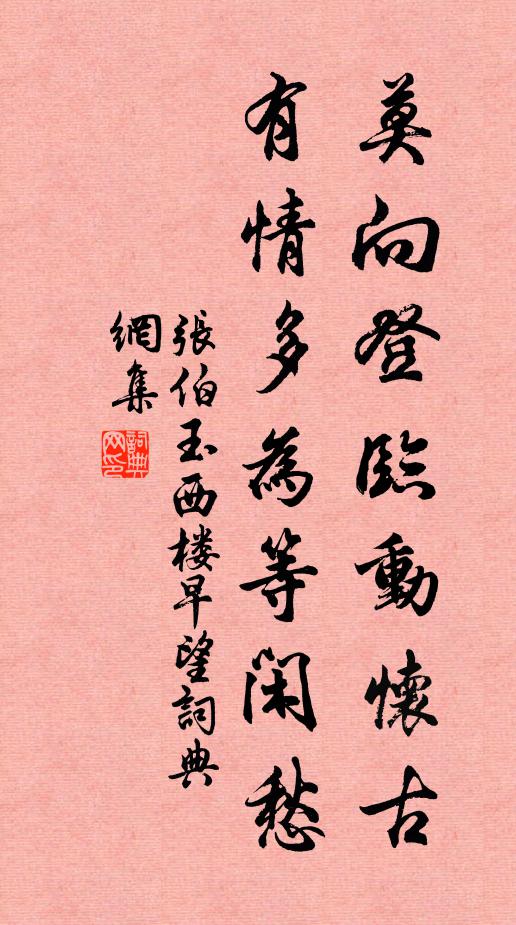 莫向登臨動懷古
有情多為等閑愁
張伯玉西樓早望詞典
網集
詞典
网印